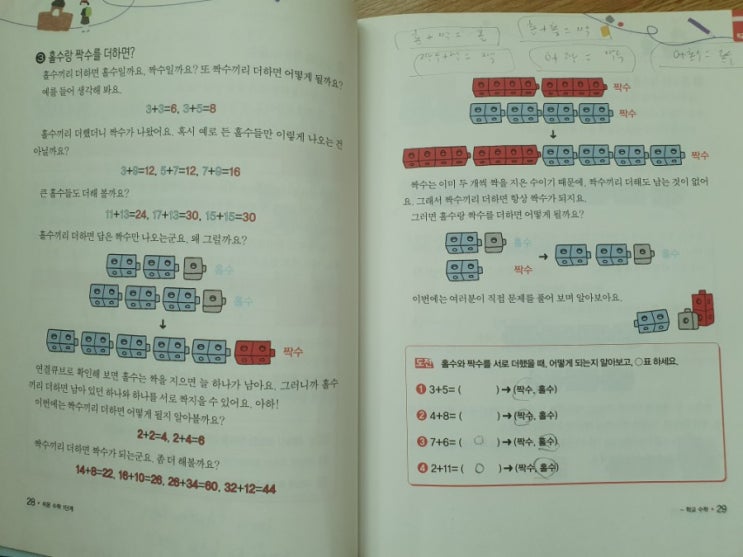 ❸ 홀수랑 짝수를 더하면?
홀수끼리 더하면 홀수일까요, 짝수일까요? 또 짝수끼리 더하면 어떻게 될까요?
예를 들어 생각해 봐요.
3+3=6, 3+5=8
홀수끼리 더했더니 짝수가 나왔어요. 혹시 예로 든 홀수들만 이렇게 나오는 건
아닐까요?
3+9=12, 5+7=12, 7+9=16
큰 홀수들도 더해 볼까요?
11+13=24, 17+13=30, 15+15=30
홀수끼리 더하면 답은 짝수만 나오는군요. 왜 그럴까요?
홀수
홀수
짝수
연결큐브로 확인해 보면 홀수는 짝을 지으면 늘 하나가 남아요. 그러니까 홀수
끼리 더하면 남아 있던 하나와 하나를 서로 짝지을 수 있어요. 아하!
이번에는 짝수끼리 더하면 어떻게 될지 알아볼까요?
2+2=4, 2+4=6
짝수끼리 더하면 짝수가 되는군요. 좀 더 해볼까요?
14+8=22, 16+10=26, 26+34=60, 32+12=44
28 • 1단계
짝수
짝수
짝수
짝수는 이미 두 개씩 짝을 지은 수이기 때문에, 짝수끼리 더해도 남는 것이 없어
요. 그래서 짝수끼리 더하면 항상 짝수가 되지요.
그러면 홀수랑 짝수를 더하면 어떻게 될까요?
홀수
짝수
홀수
이번에는 여러분이 직접 문제를 풀어 보며 알아보아요.
홀수와 짝수를 서로 더했을 때, 어떻게 되는지 알아보고, ○표 하세요.
❶ 3+5=( ) → (짝수, 홀수)
❷ 4+8=( ) → (짝수, 홀수)
❸ 7+6=( ) → (짝수, 홀수)
❹ 2+11=( ) → (짝수, 홀수)
학교 수학 • 29